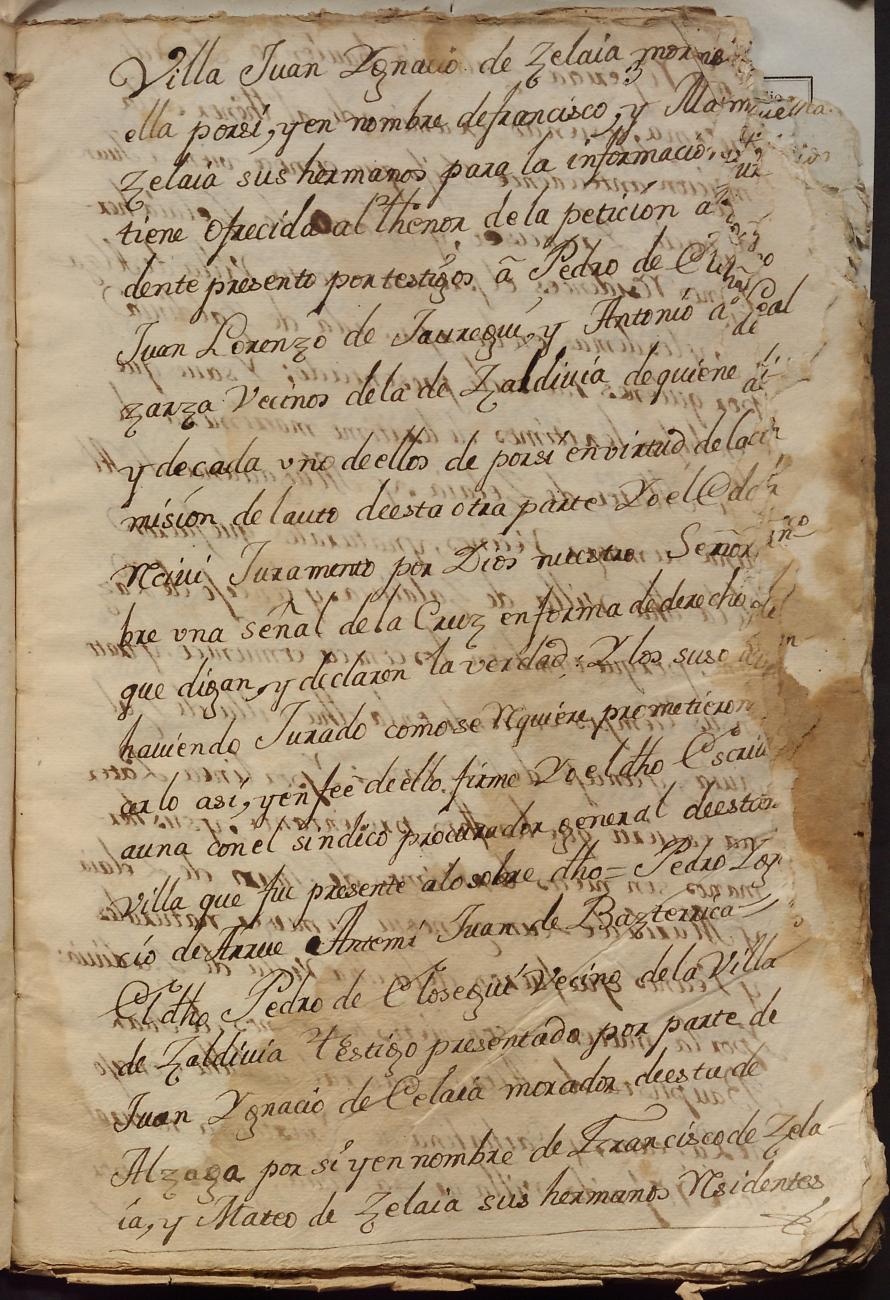 Villa Juan Ygnacio de Zelaia
ella porsí, yen nombre defrancisco, y
Zelaia sus hermanos para la informacion
tiene ofrecida al thenor de la petición
dente presento por testigos a Pedro de
Juan Lorenzo de Jauregui, y Antonio
zarza Vecinos dela de Zaldivia dequiene
y decada vno deellos de porsí envirtud dela
misión delauto deesta otra parte Yo el
Rcivi Juramento por Dios nuestro Señor
bre vna señal dela Cruz enforma dederecho
que digan, y declaren la verdad; Y los suso
haviendo Jurado comose Rquiere prometieron
ar lo así, yen fee deello firme Yo el dho Escriv
auna conel sindico procurador general deesta
Villa que fue presente alo sobre dho= Pedro Ygn
cio de Arrue Antemí Juan de Bazterrica=
El dho Pedro de Elosegui Vecino dela Villa
de Zaldivia testigo presentado por parte de
Juan Ygnacio de Celaia morador deesta de
Alzaga por sí yen nombre de Francisco de Zela-
ia, y Mateo de Zelaia sus hermanos Rsidentes